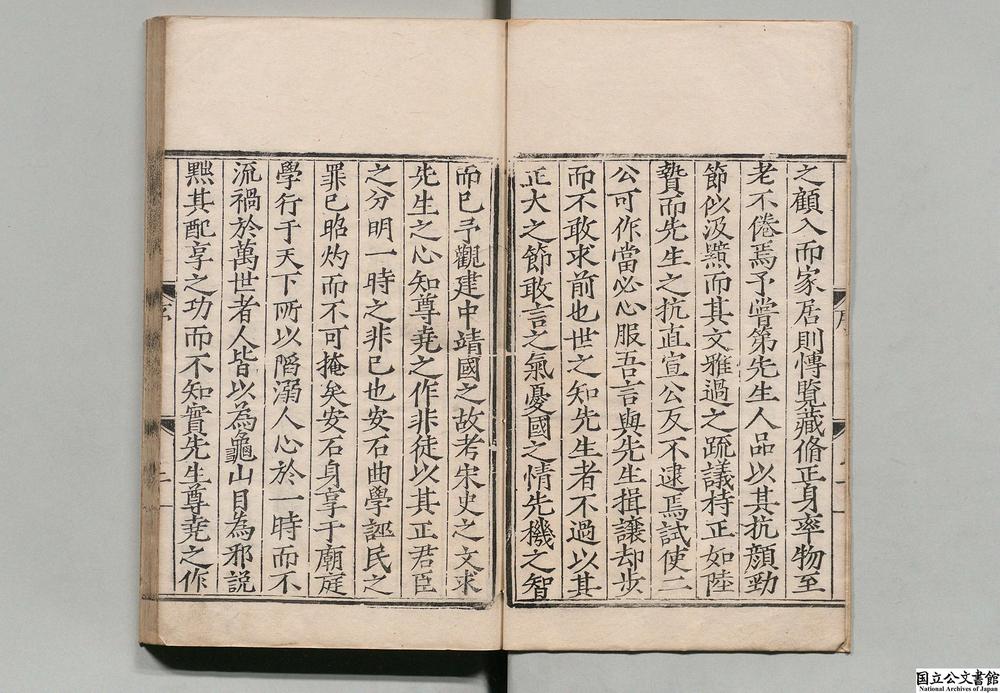 之顧入而家居則慱覧藏脩正身率物至
老不倦焉予嘗第先生人品以其抗顏勁
節似汲黯而其文雅過之疏議持正如陸
贄而先生之抗直宣公反不逮焉試使二
公可作當必心服吾言與先生揖讓却歩
而不敢求前也世之知先生者不過以其
正大之節敢言之氣憂國之情先機之智
而已予觀建中靖國之故考宋史之文求
先生之心知尊堯之作非徒以其正君臣
之分明一時之非已也安石曲學誣民之
罪已昭灼而不可掩矣安石身享于廟庭
學行于天下所以䧟溺人心於一時而不
流禍於萬世者人皆以為龜山目為邪説
黜其配享之功而不知實先生尊堯之作
序
二
国立公文書館
National Archives of Japan